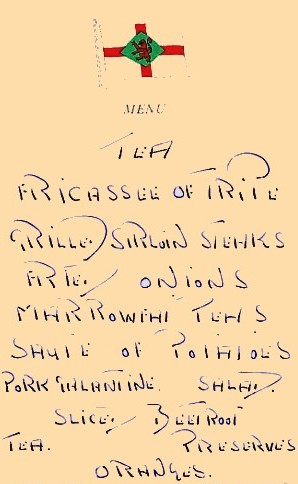 MENU
TEA
FRICASSEE OF TRIPE
GRILLED SIRLOIN STEAKS
FRIED ONIONS
MARROWFAT PEAS
SAUTE OF POTATOES
PORK GALANTINE. SALAD.
SLICED BEETROOT
TEA. PRESERVES
ORANGES.